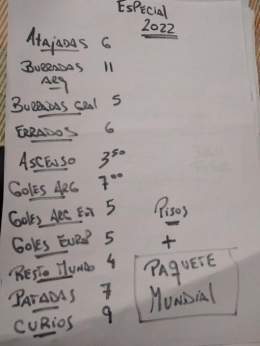 ESPECIAL
2022
Atajadas 6
BURRADAS 11
ARG
BURRADAS GRAL 5
ERRADOS 6
ASCENSO 3⁵⁰
GOLES ARG 7⁰⁰
GOLES ARG EXT 5
GOLES EUROP 5
RESTO MUNDO 4
PATADAS 7
CURIOS 9
PISOS
+
PAQUETE
MUNDIAL